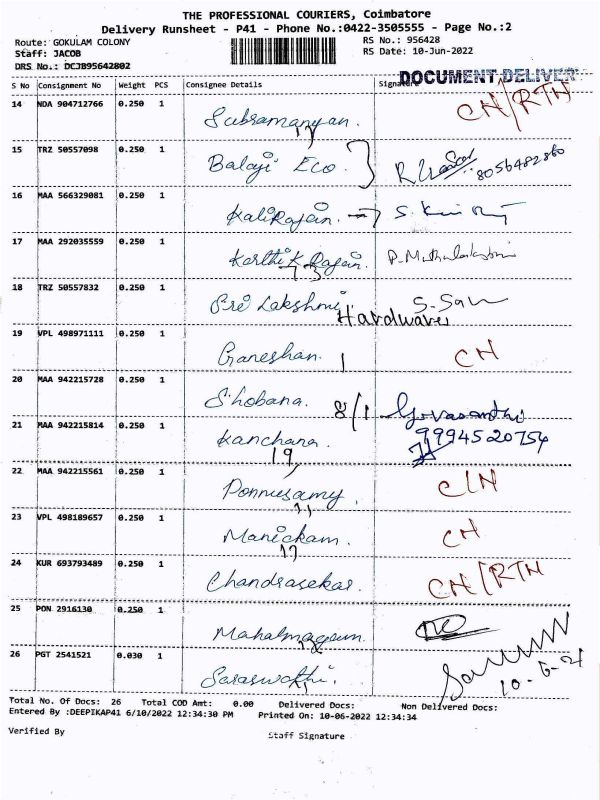 THE PROFESSIONAL COURIERS, Coimbatore
Delivery Runsheet - P41 - Phone No.:0422-3505555 - Page No.:2
Route: GOKULAM COLONY RS No.: 956428
Staff: JACOB RS Date: 10-Jun-2022
DRS No.: DCJB95642802
DOCUMENT DELIVER
S No Consignment No Weight PCS Consignee Details Signature
14 NDA 904712766 0.250 1 Subramanyan. CN/RTN
15 TRZ 50557098 0.250 1 Balaji Eco 8056482860
16 MAA 566329081 0.250 1 KaliRajan.
17 MAA 292035559 0.250 1 Karthik Rajan.
18 TRZ 50557832 0.250 1 Sri Lakshmi Hardwares
19 VPL 498971111 0.250 1 Ganeshan. CN
20 MAA 942215728 0.250 1 Shobana. 8/1 Govasanthi
21 MAA 942215814 0.250 1 Kanchana. 19 9994520754
22 MAA 942215561 0.250 1 Ponnusamy. CN
23 VPL 498189657 0.250 1 Manickam. CN
24 KUR 693793489 0.250 1 Chandrasekar CN/RTN
25 PON 2916130 0.250 1
26 PGT 2541521 0.030 1 Saraswathi.
Total No. Of Docs: 26 Total COD Amt: 0.00 Delivered Docs: Non Delivered Docs:
Entered By :DEEPIKAP41 6/10/2022 12:34:30 PM Printed On: 10-06-2022 12:34:34
Verified By Staff Signature